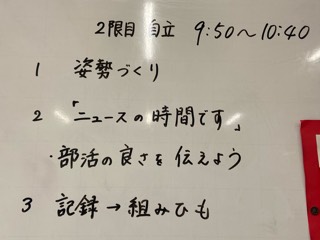 2限目 自立 9:50～10:40
1 姿勢づくり
2 「ニュースの時間です」
・部活の良さを伝えよう
3 記録→組みひも